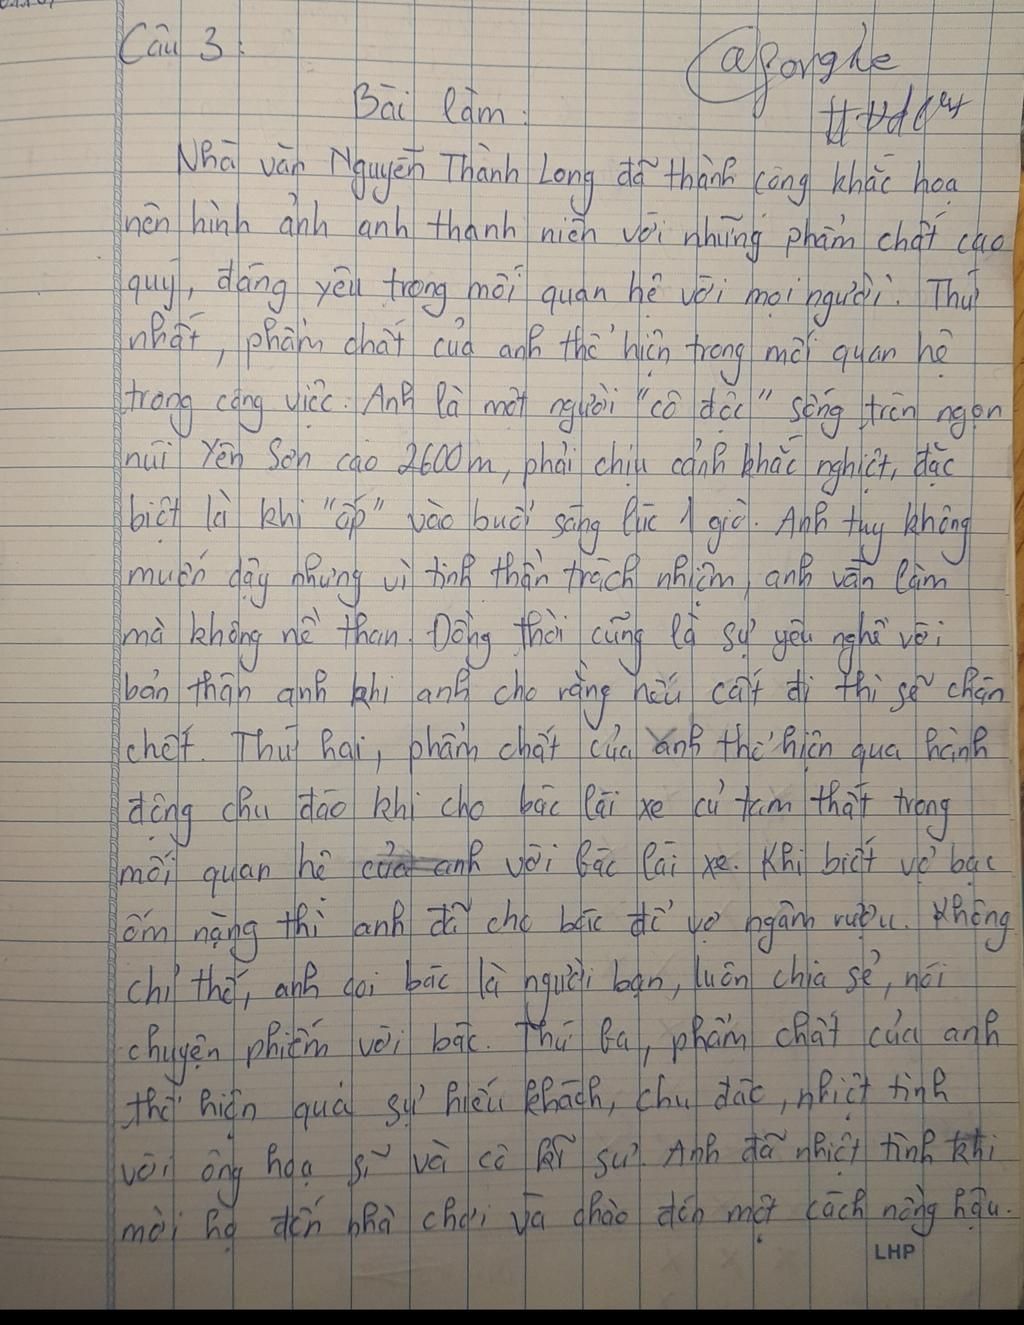 Câu 3:
@Songhe
Bài làm:
Nhà văn Nguyễn Thành Long đã thành công khắc hoạ
nên hình ảnh anh thanh niên với những phẩm chất cao
quý, đáng yêu trong mối quan hệ với mọi người. Thứ
nhất, phẩm chất của anh thể hiện trong mối quan hệ
trong công việc. Anh là một người "cô độc" sống trên ngọn
núi Yên Sơn cao 2600m, phải chịu cảnh khắc nghiệt, đặc
biệt là khi "ốp" vào buổi sáng lúc 1 giờ. Anh tuy không
muốn dậy nhưng vì tinh thần trách nhiệm, anh vẫn làm
mà không nề than. Đồng thời cũng là sự yêu nghề với
bản thân anh khi anh cho rằng nếu cất đi thì sẽ chán
chết. Thứ hai, phẩm chất của anh thể hiện qua hành
động chu đáo khi cho bác lái xe củ tam thất trong
mối quan hệ với bác lái xe. Khi biết vợ bác
ốm nặng thì anh đã cho bác để vợ ngâm rượu. Không
chỉ thế, anh coi bác là người bạn, luôn chia sẻ, nói
chuyện phiếm với bác. Thứ ba, phẩm chất của anh
thể hiện quả sự hiếu khách, chu đáo, nhiệt tình
với ông hoạ sĩ và cô kĩ sư. Anh đã nhiệt tình khi
mời họ đến nhà chơi và chào đón một cách nồng hậu.
LHP